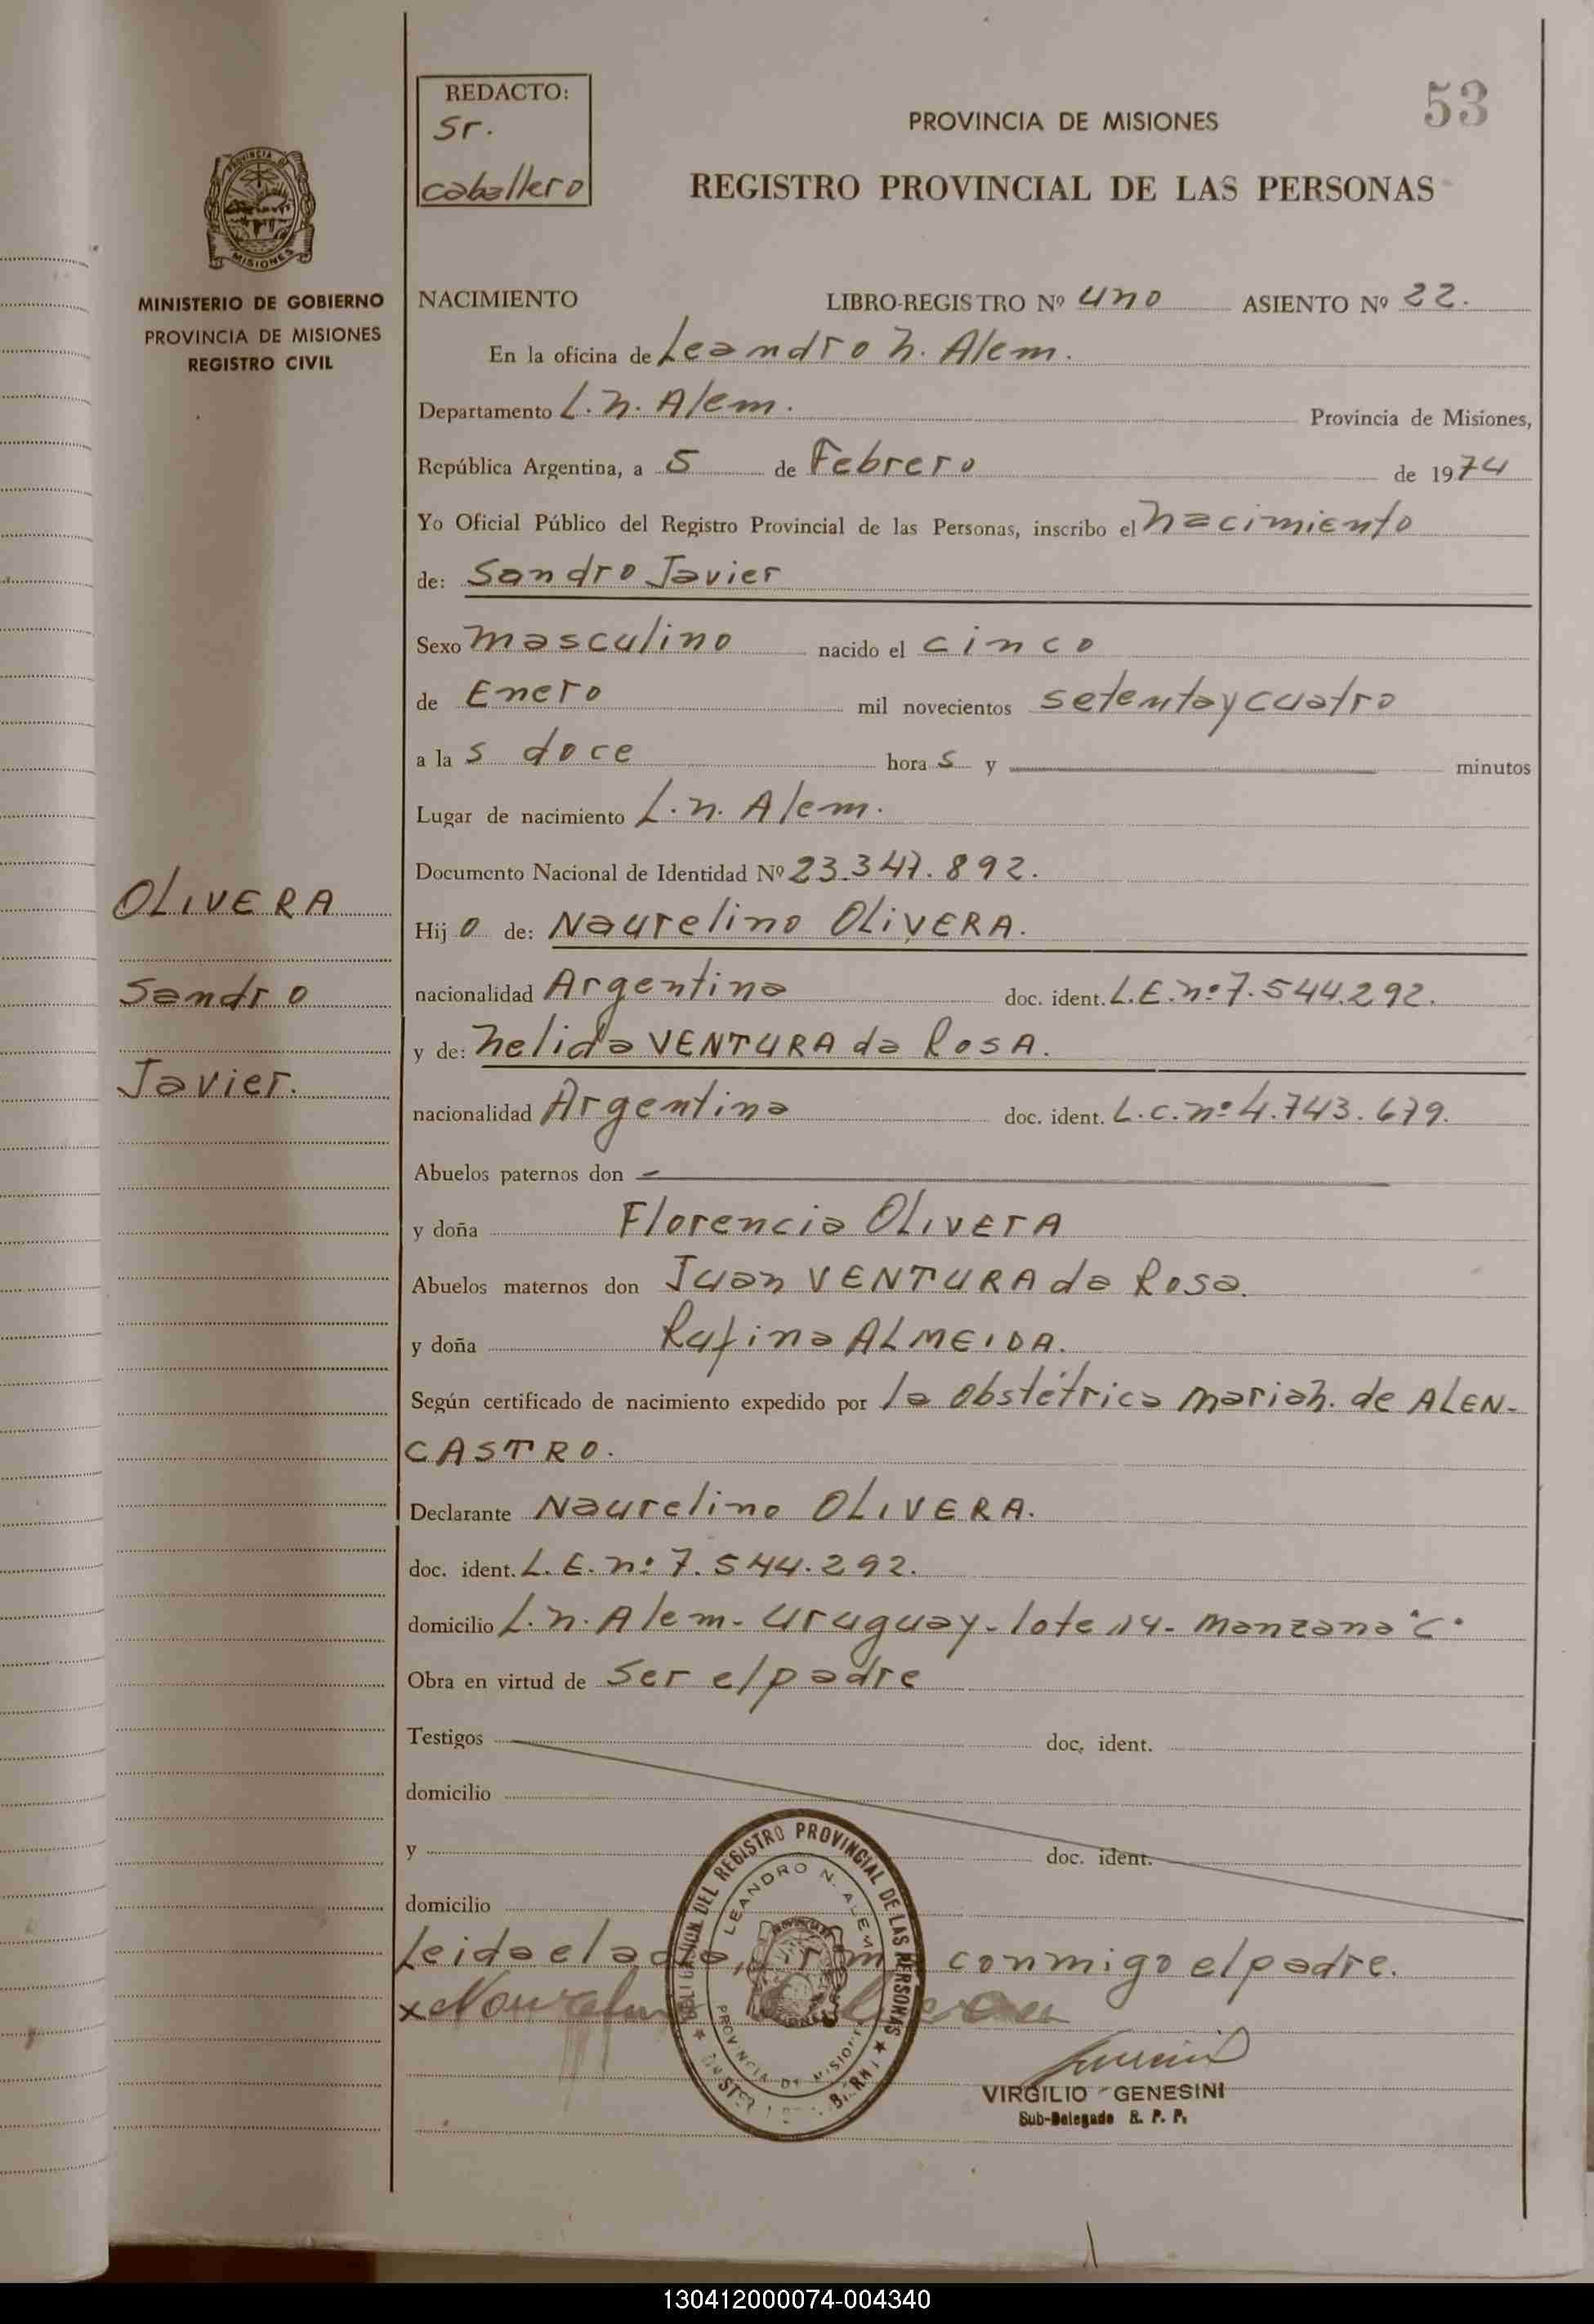 53
REDACTO:
Sr.
caballero
PROVINCIA DE MISIONES
REGISTRO PROVINCIAL DE LAS PERSONAS
PROVINCIA DE
MISIONES
MINISTERIO DE GOBIERNO
PROVINCIA DE MISIONES
REGISTRO CIVIL
OLIVERA
Sandro
Javier.
NACIMIENTO LIBRO-REGISTRO Nº uno ASIENTO Nº 22.
En la oficina de Leandro N. Alem.
Departamento L. N. Alem. Provincia de Misiones,
República Argentina, a 5 de Febrero de 1974
Yo Oficial Público del Registro Provincial de las Personas, inscribo el nacimiento
de: Sandro Javier
Sexo masculino nacido el cinco
de Enero mil novecientos setenta y cuatro
a las doce horas y minutos
Lugar de nacimiento L. N. Alem.
Documento Nacional de Identidad Nº 23.347.892.
Hijo de: Naurelino OLIVERA.
nacionalidad Argentina doc. ident. L.E. nº 7.544.292.
y de: Nelida VENTURA da Rosa.
nacionalidad Argentina doc. ident. L.C. nº 4.743.679.
Abuelos paternos don
y doña Florencia OLIVERA
Abuelos maternos don Juan VENTURA da Rosa.
y doña Rufina ALMEIDA.
Según certificado de nacimiento expedido por la obstétrica Maria N. de ALEN-
CASTRO.
Declarante Naurelino OLIVERA.
doc. ident. L. E. nº 7.544.292.
domicilio L. N. Alem - Uruguay - lote 14 - manzana "C"
Obra en virtud de ser el padre
Testigos doc. ident.
domicilio
y doc. ident.
domicilio
Leida el acta, firma conmigo el padre.
x Naurelino Olivera
DEL REGISTRO PROVINCIAL DE LAS PERSONAS
LEANDRO N. ALEM
PROVINCIA DE MISIONES
VIRGILIO GENESINI
Sub-Delegado R. P. P.
130412000074-004340